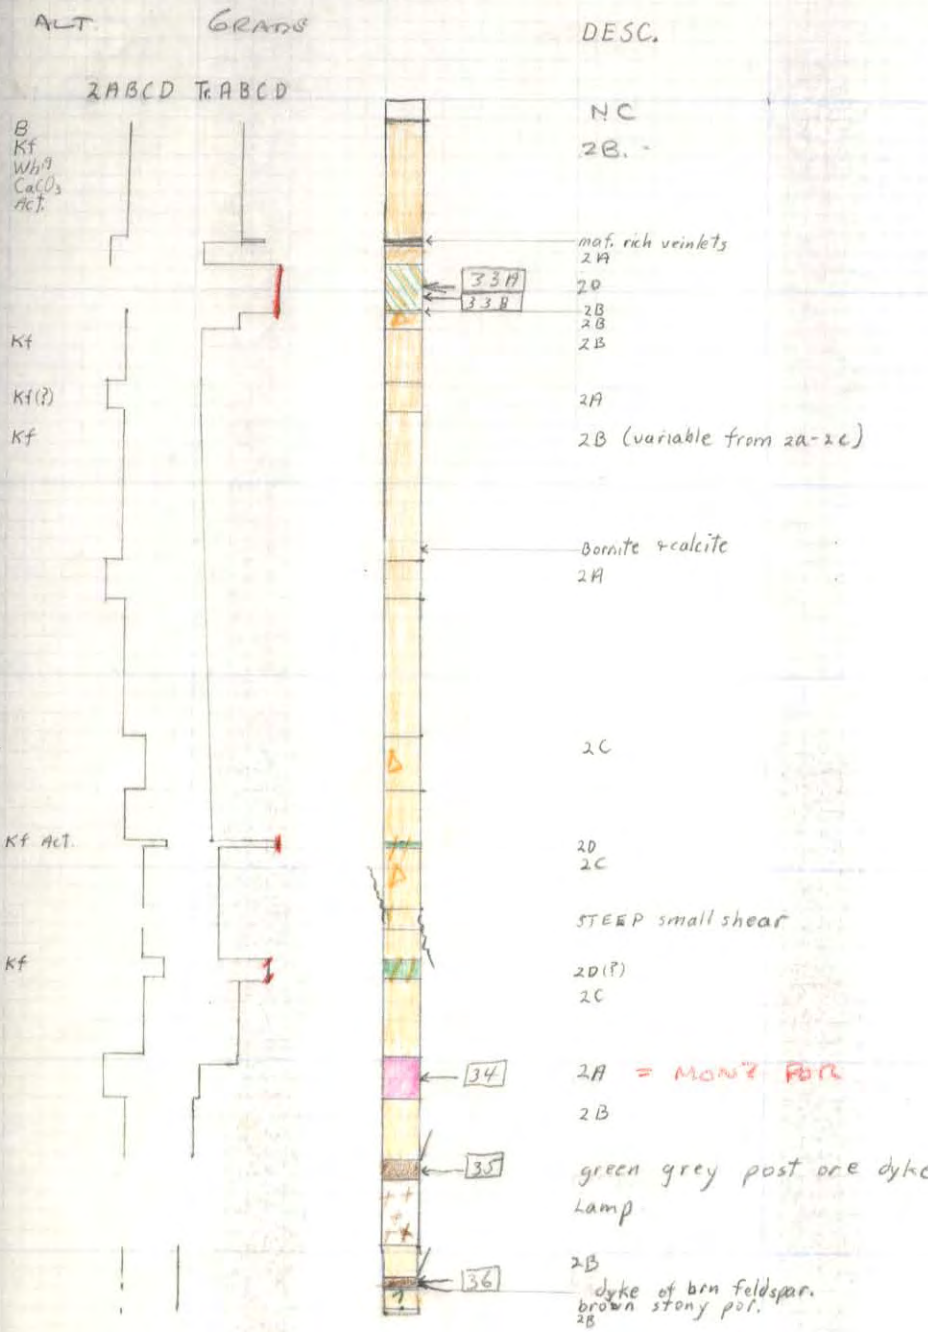 ALT. GRADS DESC.
2ABCD Tr.ABCD
NC
B
Kf
CaCO3
Act.
2B.
maf. rich veinlets
2A
33A 2D
33B 2B
2B
Kf 2B
Kf(?) 2A
Kf 2B (variable from 2a-2c)
Bornite + calcite
2A
2C
Kf Act. 2D
2C
STEEP small shear
Kf 2D(?)
2C
34 2A = MONZ POR
2B
35 green grey post ore dyke
Lamp
2B
36 dyke of brn feldspar.
brown stony por.
?
2B